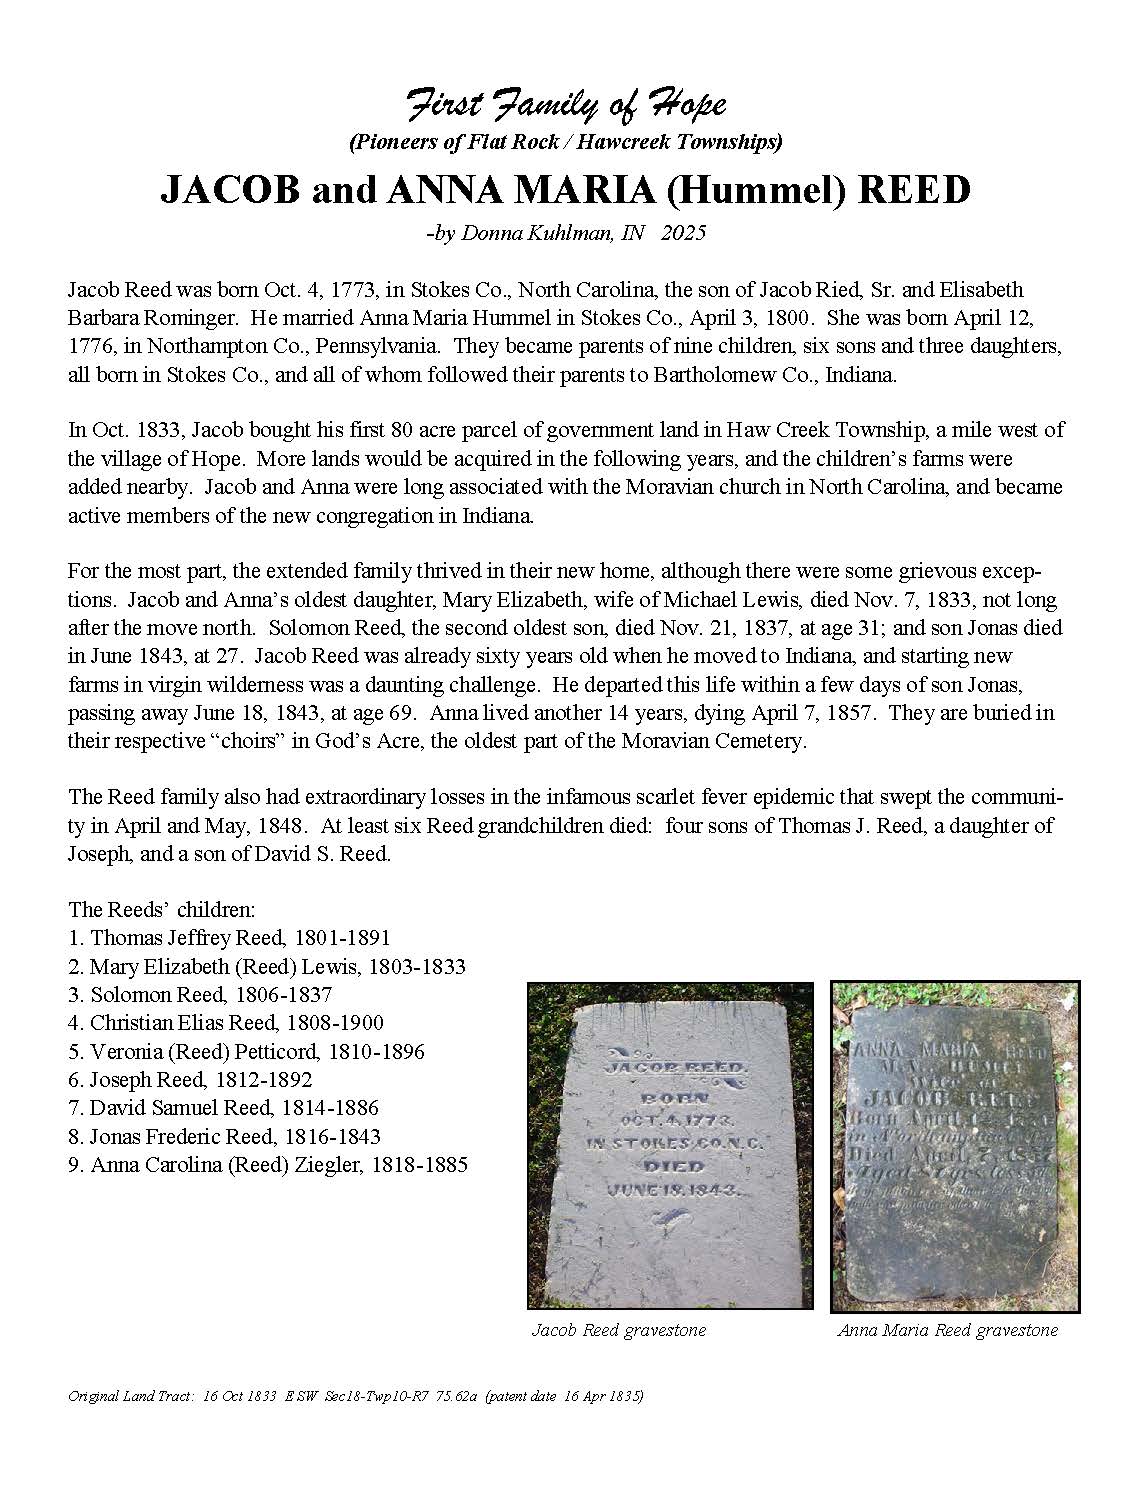 First Family of Hope
(Pioneers of Flat Rock / Hawcreek Townships)
JACOB and ANNA MARIA (Hummel) REED
-by Donna Kuhlman, IN 2025
Jacob Reed was born Oct. 4, 1773, in Stokes Co., North Carolina, the son of Jacob Ried, Sr. and Elisabeth
Barbara Rominger. He married Anna Maria Hummel in Stokes Co., April 3, 1800. She was born April 12,
1776, in Northampton Co., Pennsylvania. They became parents of nine children, six sons and three daughters,
all born in Stokes Co., and all of whom followed their parents to Bartholomew Co., Indiana.
In Oct. 1833, Jacob bought his first 80 acre parcel of government land in Haw Creek Township, a mile west of
the village of Hope. More lands would be acquired in the following years, and the children's farms were
added nearby. Jacob and Anna were long associated with the Moravian church in North Carolina, and became
active members of the new congregation in Indiana.
For the most part, the extended family thrived in their new home, although there were some grievous excep-
tions. Jacob and Anna's oldest daughter, Mary Elizabeth, wife of Michael Lewis, died Nov. 7, 1833, not long
after the move north. Solomon Reed, the second oldest son, died Nov. 21, 1837, at age 31; and son Jonas died
in June 1843, at 27. Jacob Reed was already sixty years old when he moved to Indiana, and starting new
farms in virgin wilderness was a daunting challenge. He departed this life within a few days of son Jonas,
passing away June 18, 1843, at age 69. Anna lived another 14 years, dying April 7, 1857. They are buried in
their respective “choirs” in God's Acre, the oldest part of the Moravian Cemetery.
The Reed family also had extraordinary losses in the infamous scarlet fever epidemic that swept the communi-
ty in April and May, 1848. At least six Reed grandchildren died: four sons of Thomas J. Reed, a daughter of
Joseph, and a son of David S. Reed.
The Reeds' children:
1. Thomas Jeffrey Reed, 1801-1891
2. Mary Elizabeth (Reed) Lewis, 1803-1833
3. Solomon Reed, 1806-1837
4. Christian Elias Reed, 1808-1900
5. Veronia (Reed) Petticord, 1810-1896
6. Joseph Reed, 1812-1892
7. David Samuel Reed, 1814-1886
8. Jonas Frederic Reed, 1816-1843
9. Anna Carolina (Reed) Ziegler, 1818-1885
JACOB REED.
BORN
OCT. 4, 1773.
IN STOKES, CO. N.C.
DIED
JUNE 18, 1843.
ANNA MARIA REED
Wife of
JACOB REED
Born April
Died April, 7, 1857
Aged
Jacob Reed gravestone
Anna Maria Reed gravestone
Original Land Tract: 16 Oct 1833 E SW Sec18-Twp10-R7 75.62a (patent date 16 Apr 1835)